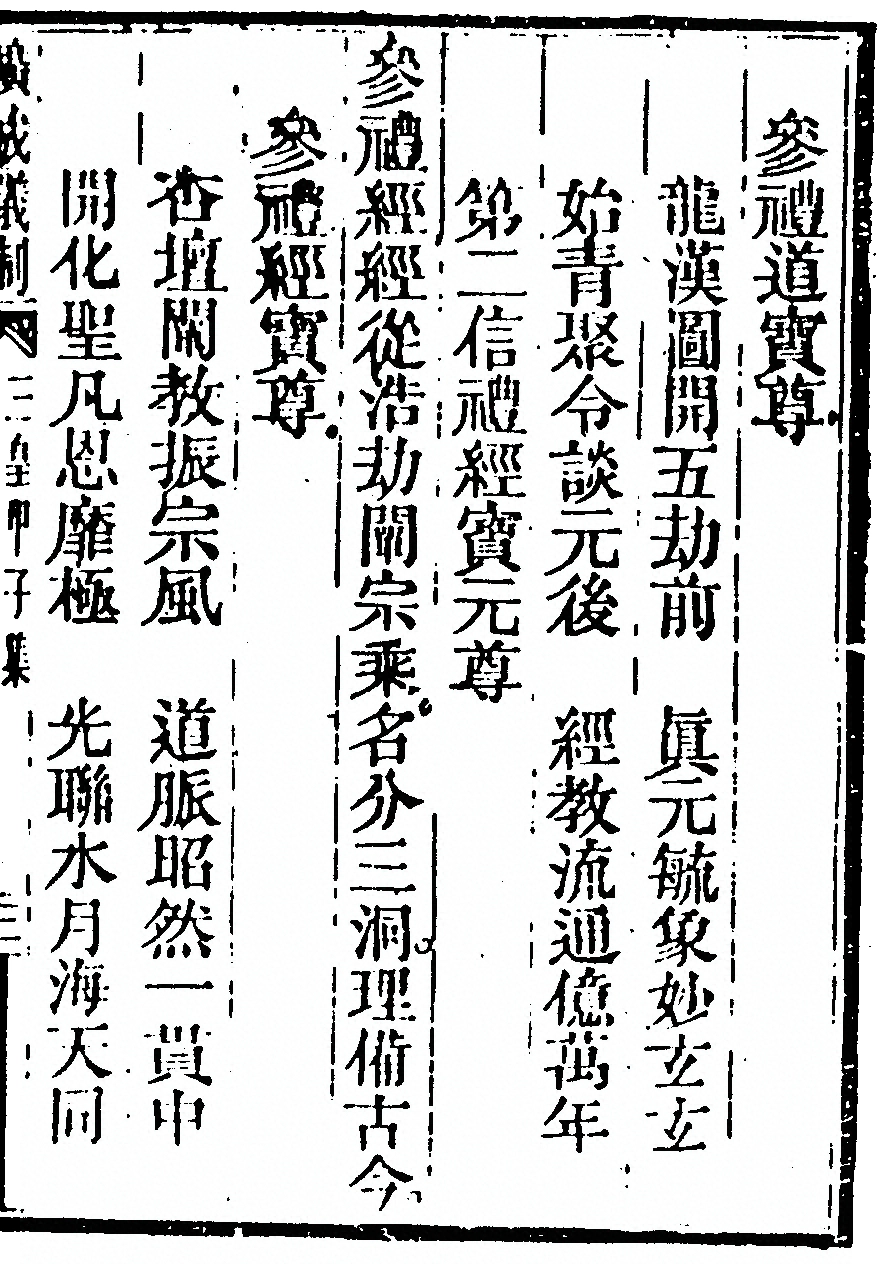 參禮道寶尊
龍漢圖開五劫前　眞元毓象妙玄玄
始青聚令談元後　經教流通億萬年
第二信禮經寶元尊
參禮經經從浩劫闡宗乘名分三洞理備古今
參禮經寶尊
杏壇闡教振宗風　道脈昭然一貫中
開化聖凡恩靡極　光聯水月海天同
廣成儀制　三皇甲子集　三